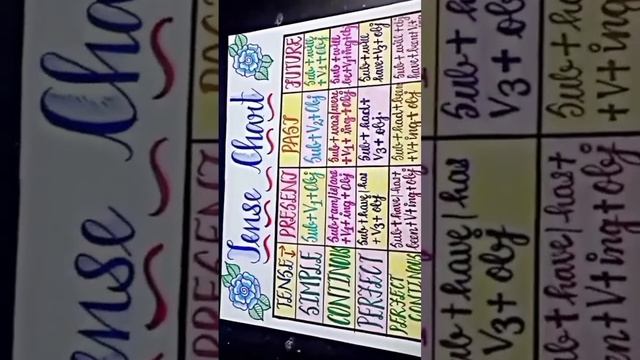 Tense Chart
TENSE PRESENT PAST FUTURE
SIMPLE Sub+V1+Obj Sub+V2+Obj Sub+will
+V1+Obj
CONTINOUS Sub+am/is/are
+V1+ing+Obj Sub+was/were
+V1+ing+obj Sub+will
be+V1+ing+obj
PERFECT Sub+have/has
+V3+obj Sub+had+
V3+obj. Sub+will
have+V3+obj
PERFECT
CONTINOUS Sub+have/has+
been+V+ing+obj Sub+had+been
+V+ing+obj Sub+will